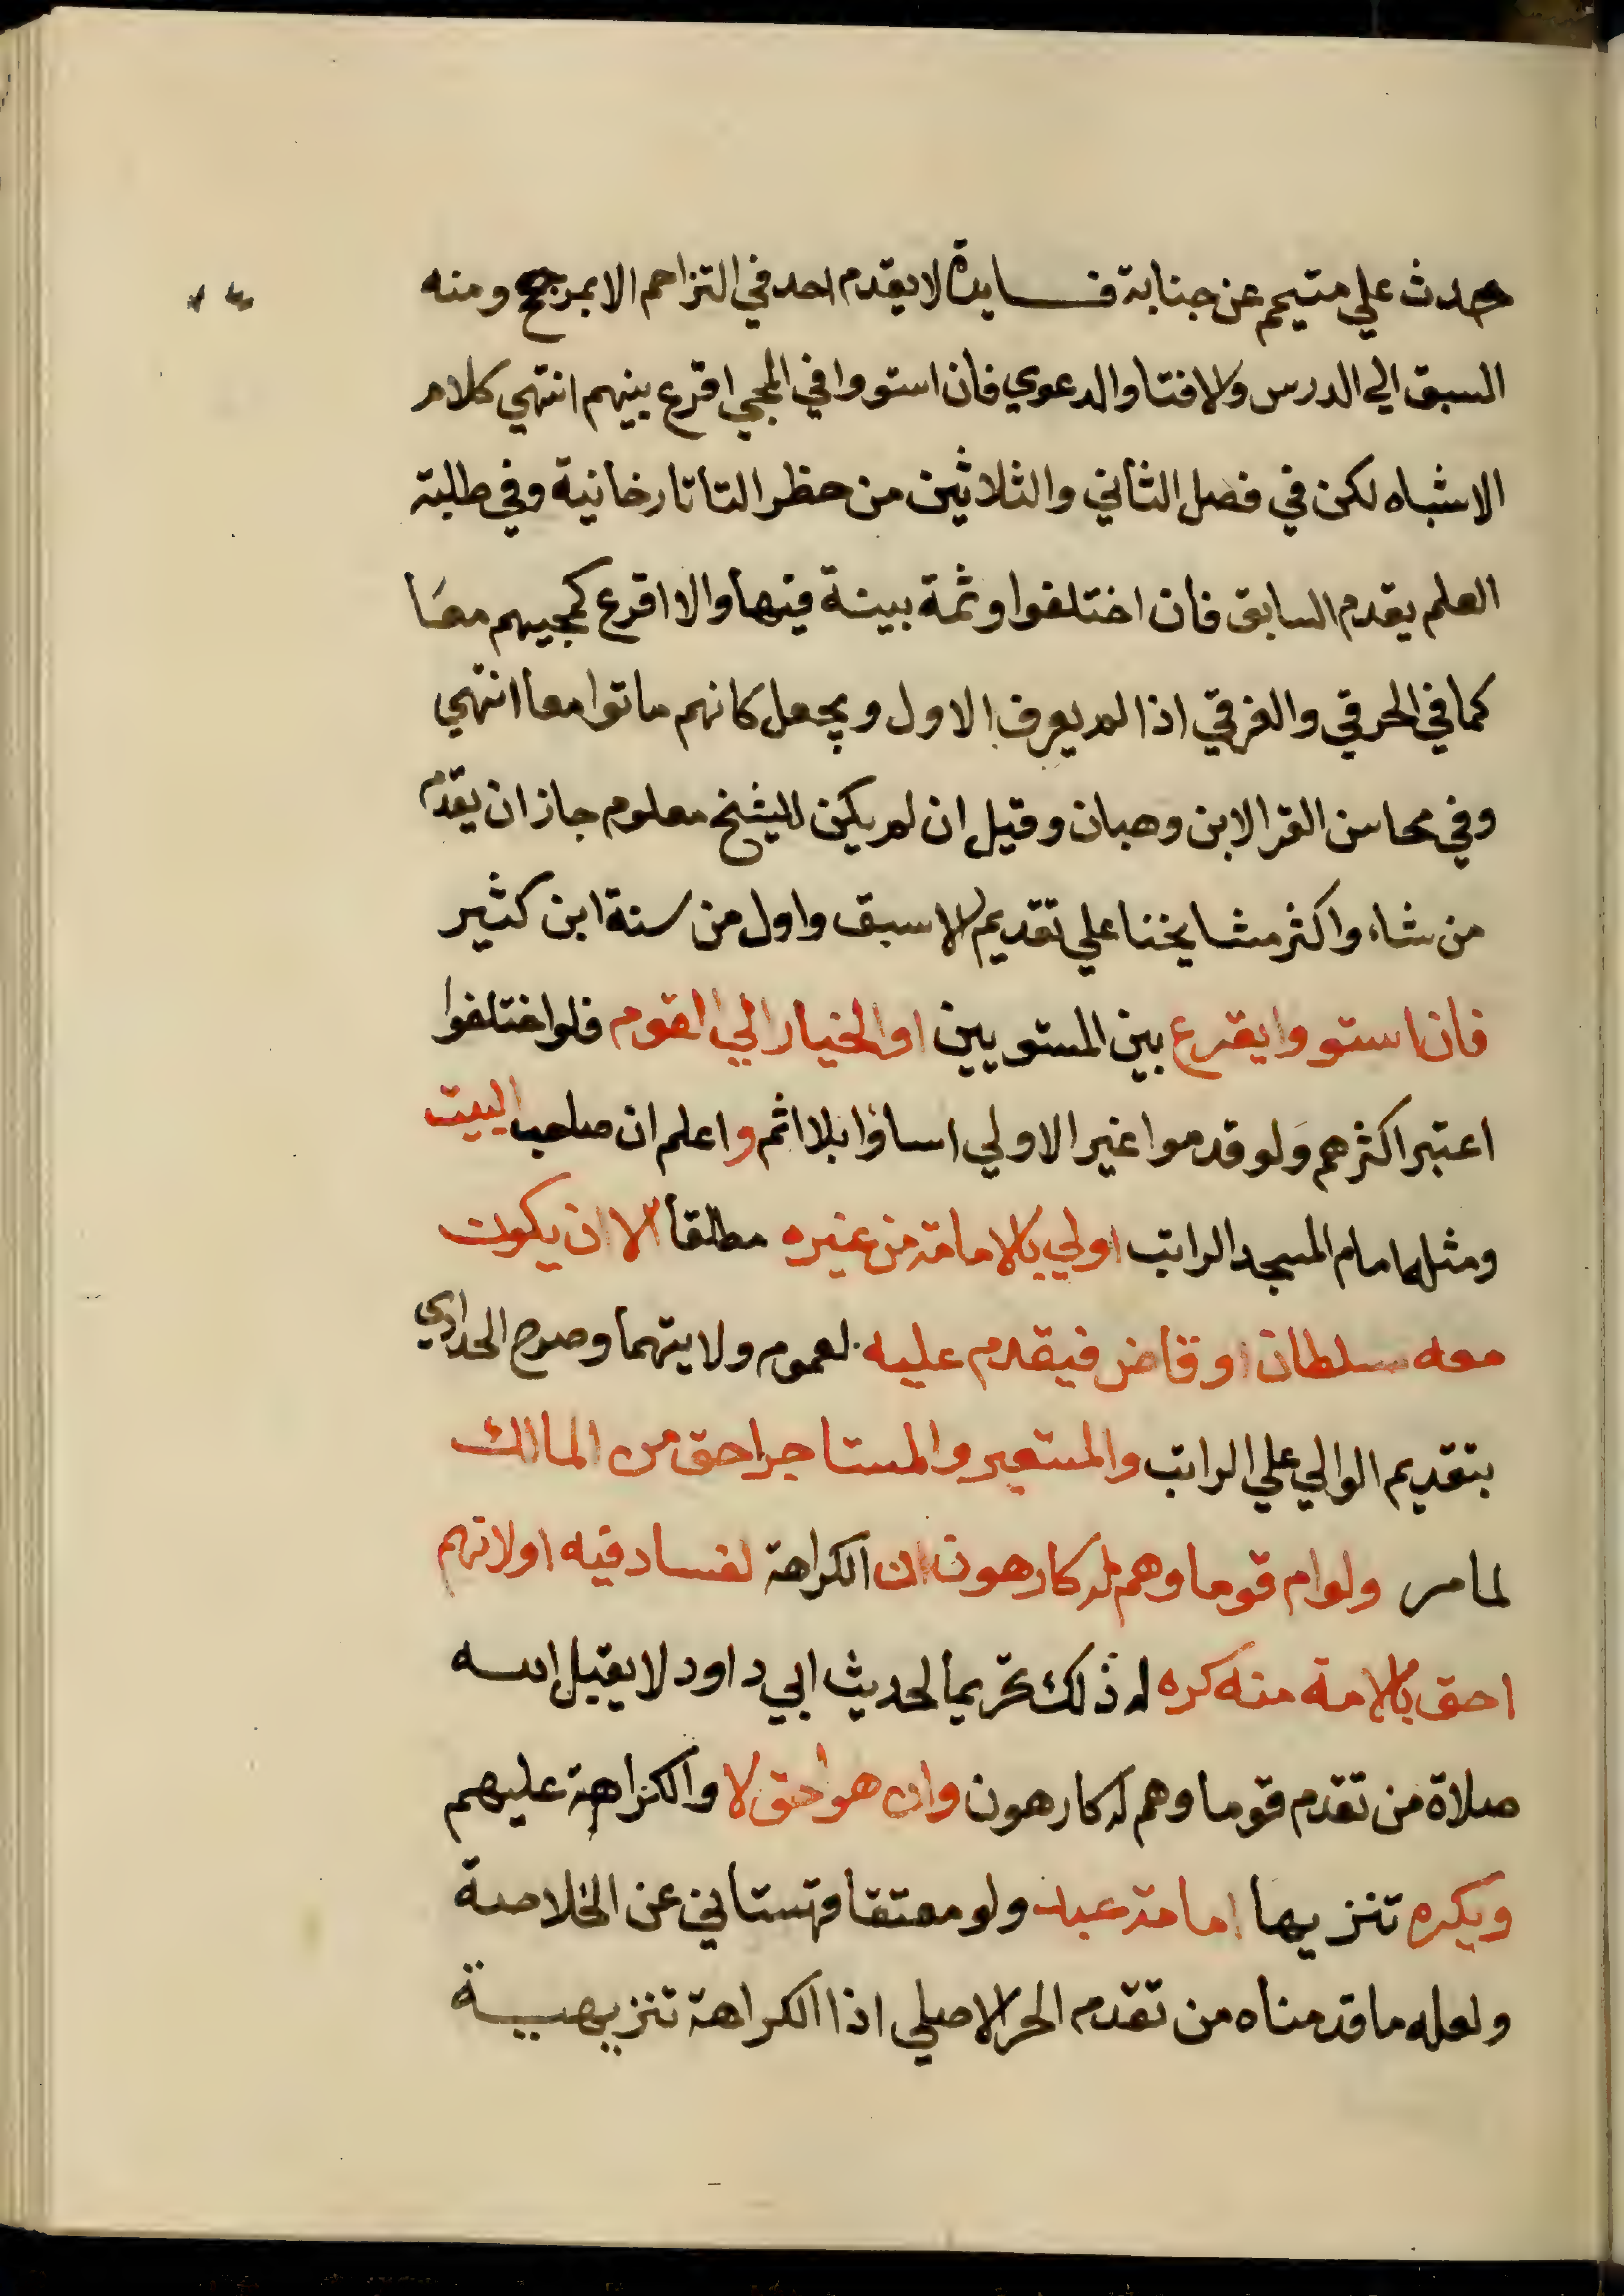 حدث علي متيمم عن جنابة فــايدة لا يقدم احد في التزاحم الا بمرجح ومنه
السبق الي الدرس والافتا والدعوي فان استووا في المجي اقرع بينهم انتهي كلام
الاشباه لكن في فصل الثاني والثلاثين من حظر التاتارخانية وفي طلبة
العلم يقدم السابق فان اختلفوا وثمة بينة فيها والا اقرع كمجيهم معا
كما في الحرقي والغرقي اذا لم يعرف الاول ويجعل كانهم ماتوا معا انتهي
وفي محاسن القرا لابن وهبان وقيل ان لم يكن للشيخ معلوم جاز ان يقدم
من شاء واكثر مشايخنا علي تقديم الاسبق واول من سنة ابن كثير
فان استووا يقرع بين المستويين او الخيار الي القوم فلو اختلفوا
اعتبر اكثرهم ولو قدموا غير الاولي اساؤا بلا اثم واعلم ان صاحب البيت
ومثله امام المسجد الراتب اولي بالامامة من غيره مطلقا الا ان يكون
معه سلطان او قاض فيقدم عليه لعموم ولايتهما وصرح الحدادي
بتقديم الوالي علي الراتب والمستعير والمستاجر احق من المالك
لما مر ولو ام قوما وهم له كارهون ان الكراهة لفساد فيه اولانهم
احق بالامة منه كره له ذلك تحريما لحديث ابي داود لا يقبل الله
صلاة من تقدم قوما وهم له كارهون وان هو احق لا والكراهة عليهم
ويكره تنزيها امامة عبد ولو معتقا قهستاني عن الخلاصة
ولعله ما قدمناه من تقدم الحر الاصلي اذا الكراهة تنزيهيــة